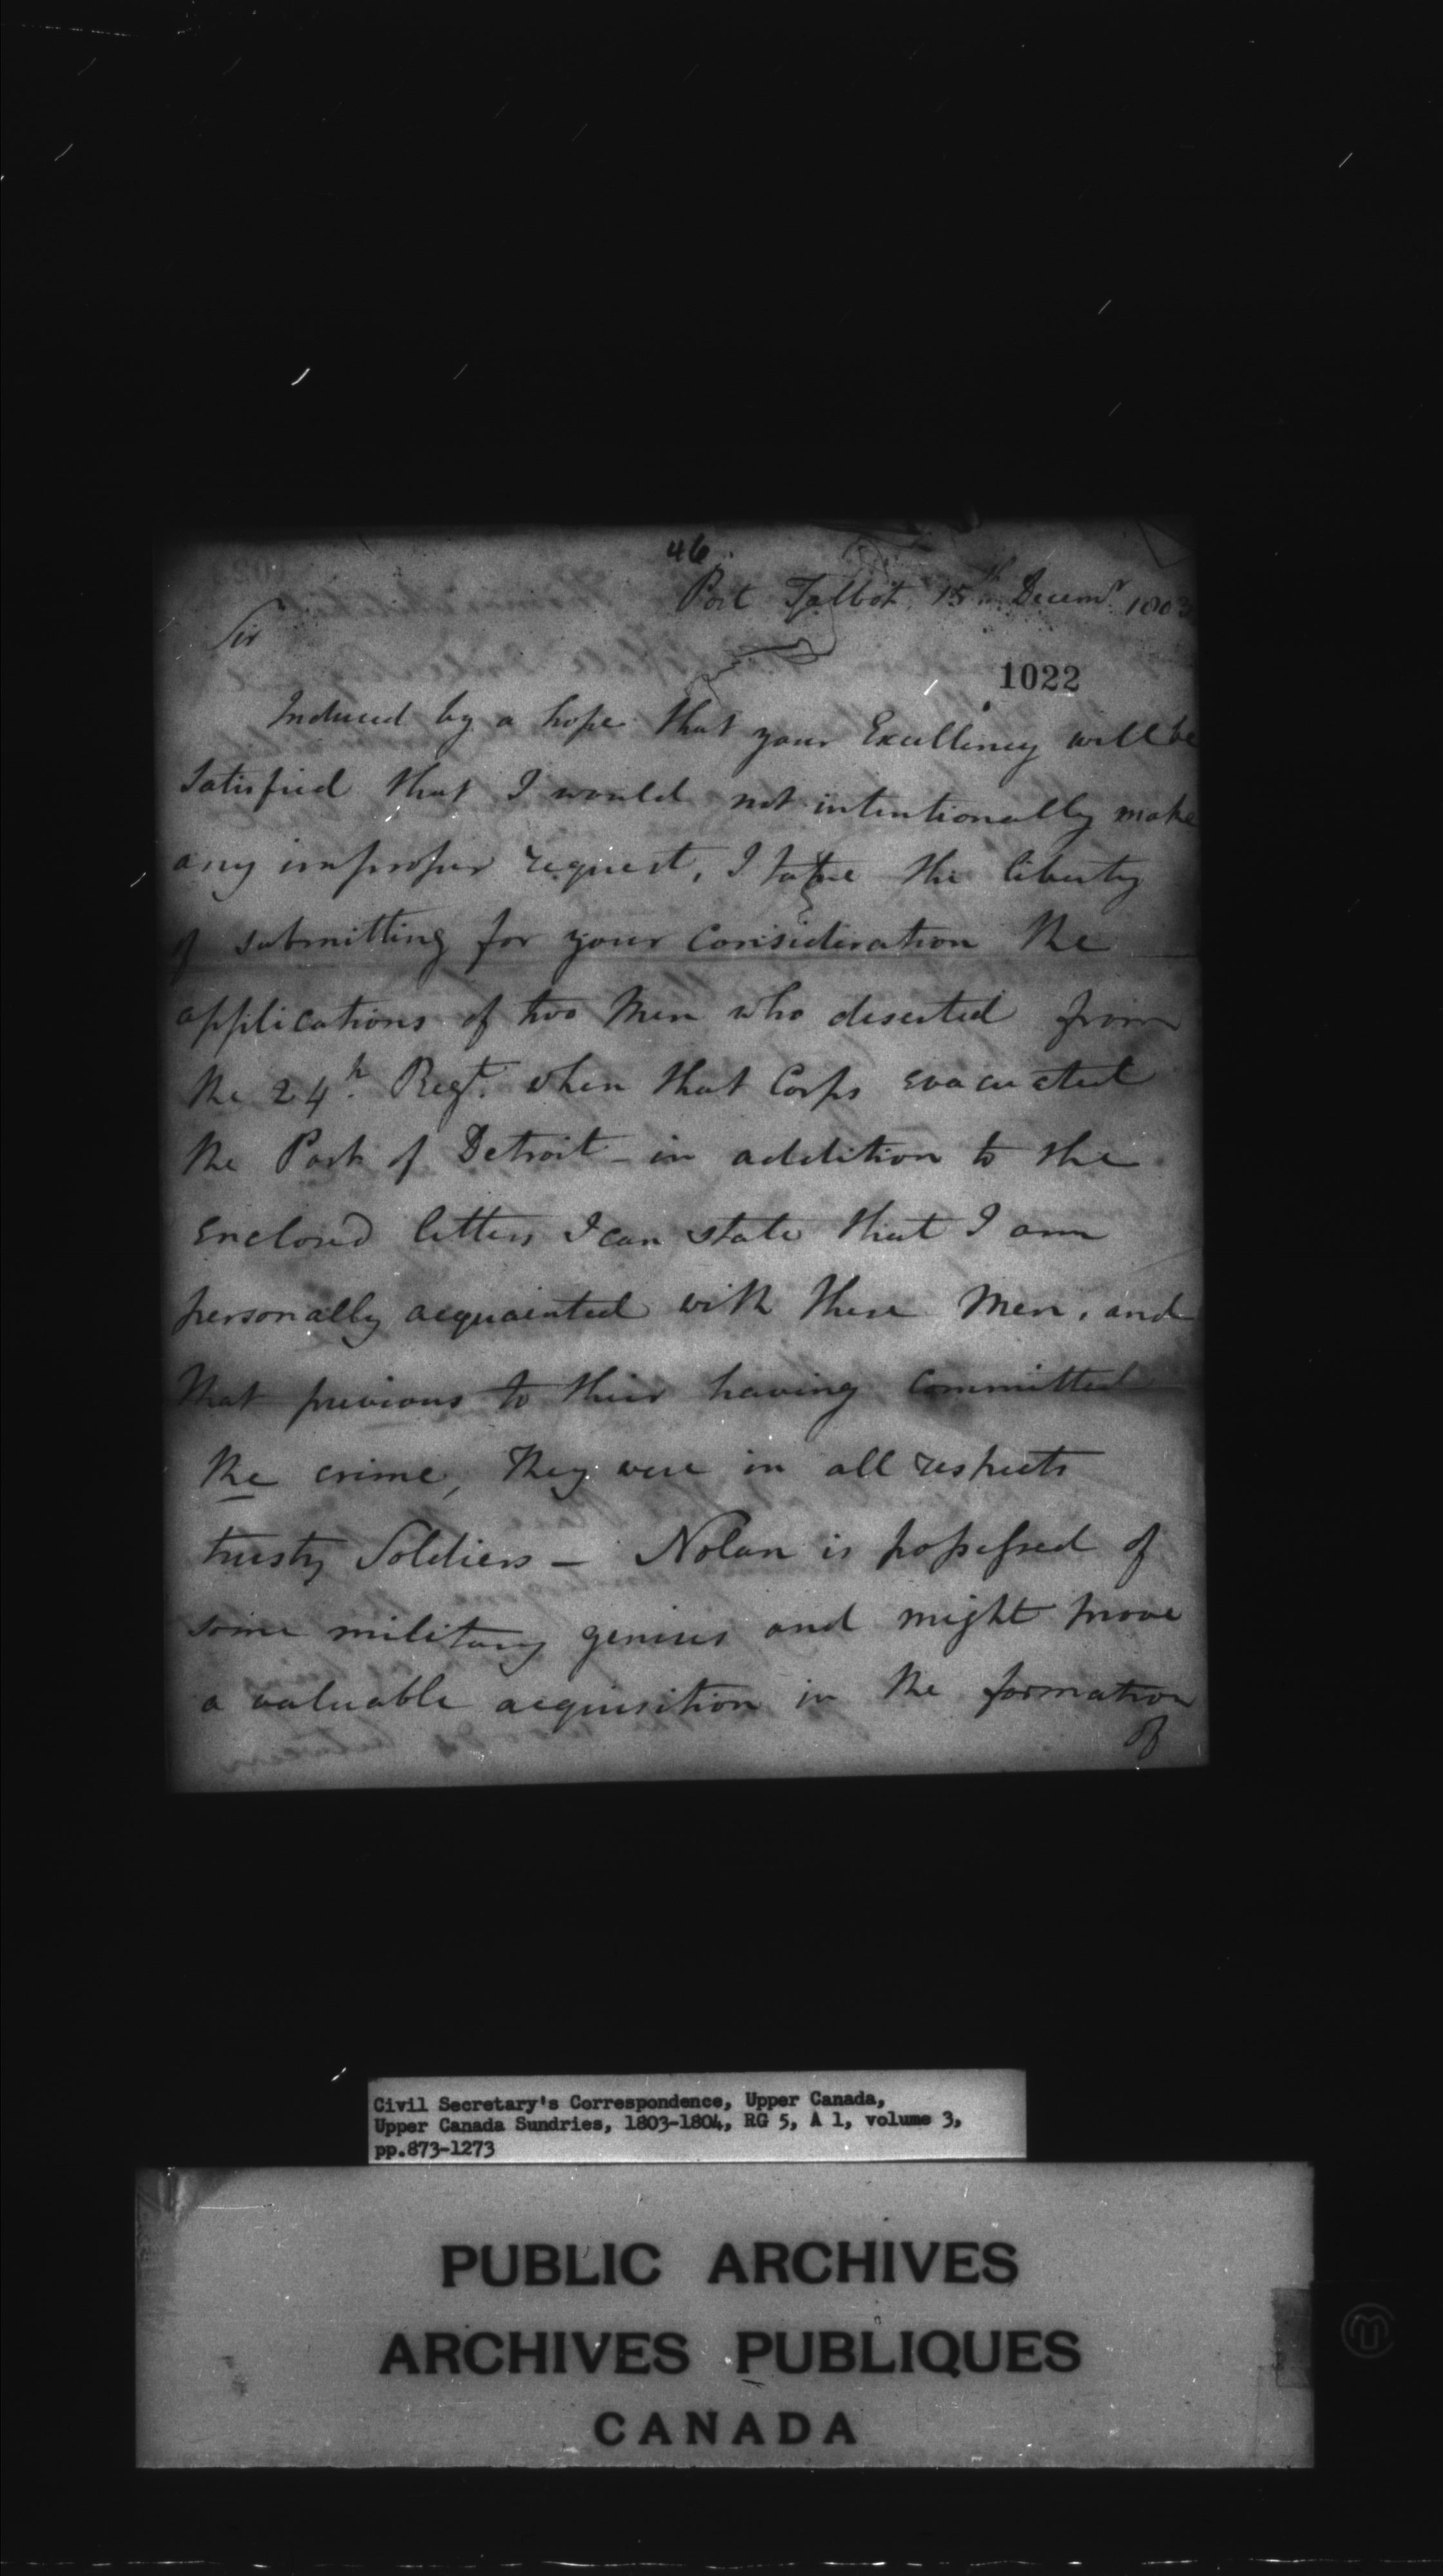 46
Port Talbot, 15th Decemr 1803
Sir
1022
Induced by a hope that your Excellency will be
Satisfied that I would not intentionally make
any improper request, I take the liberty
of submitting for your Consideration the
applications of two Men who deserted from
the 24th. Regt. when that Corps evacuated
the Post of Detroit - in addition to the
Enclosed letters I can state that I am
personally acquainted with these Men, and
that previous to their having Committed
the crime, they were in all respects
trusty Soldiers — Nolan is possessed of
some military genius and might prove
a valuable acquisition in the formation
of
Civil Secretary's Correspondence, Upper Canada,
Upper Canada Sundries, 1803-1804, RG 5, A 1, volume 3,
pp.873-1273
PUBLIC ARCHIVES
ARCHIVES PUBLIQUES
CANADA